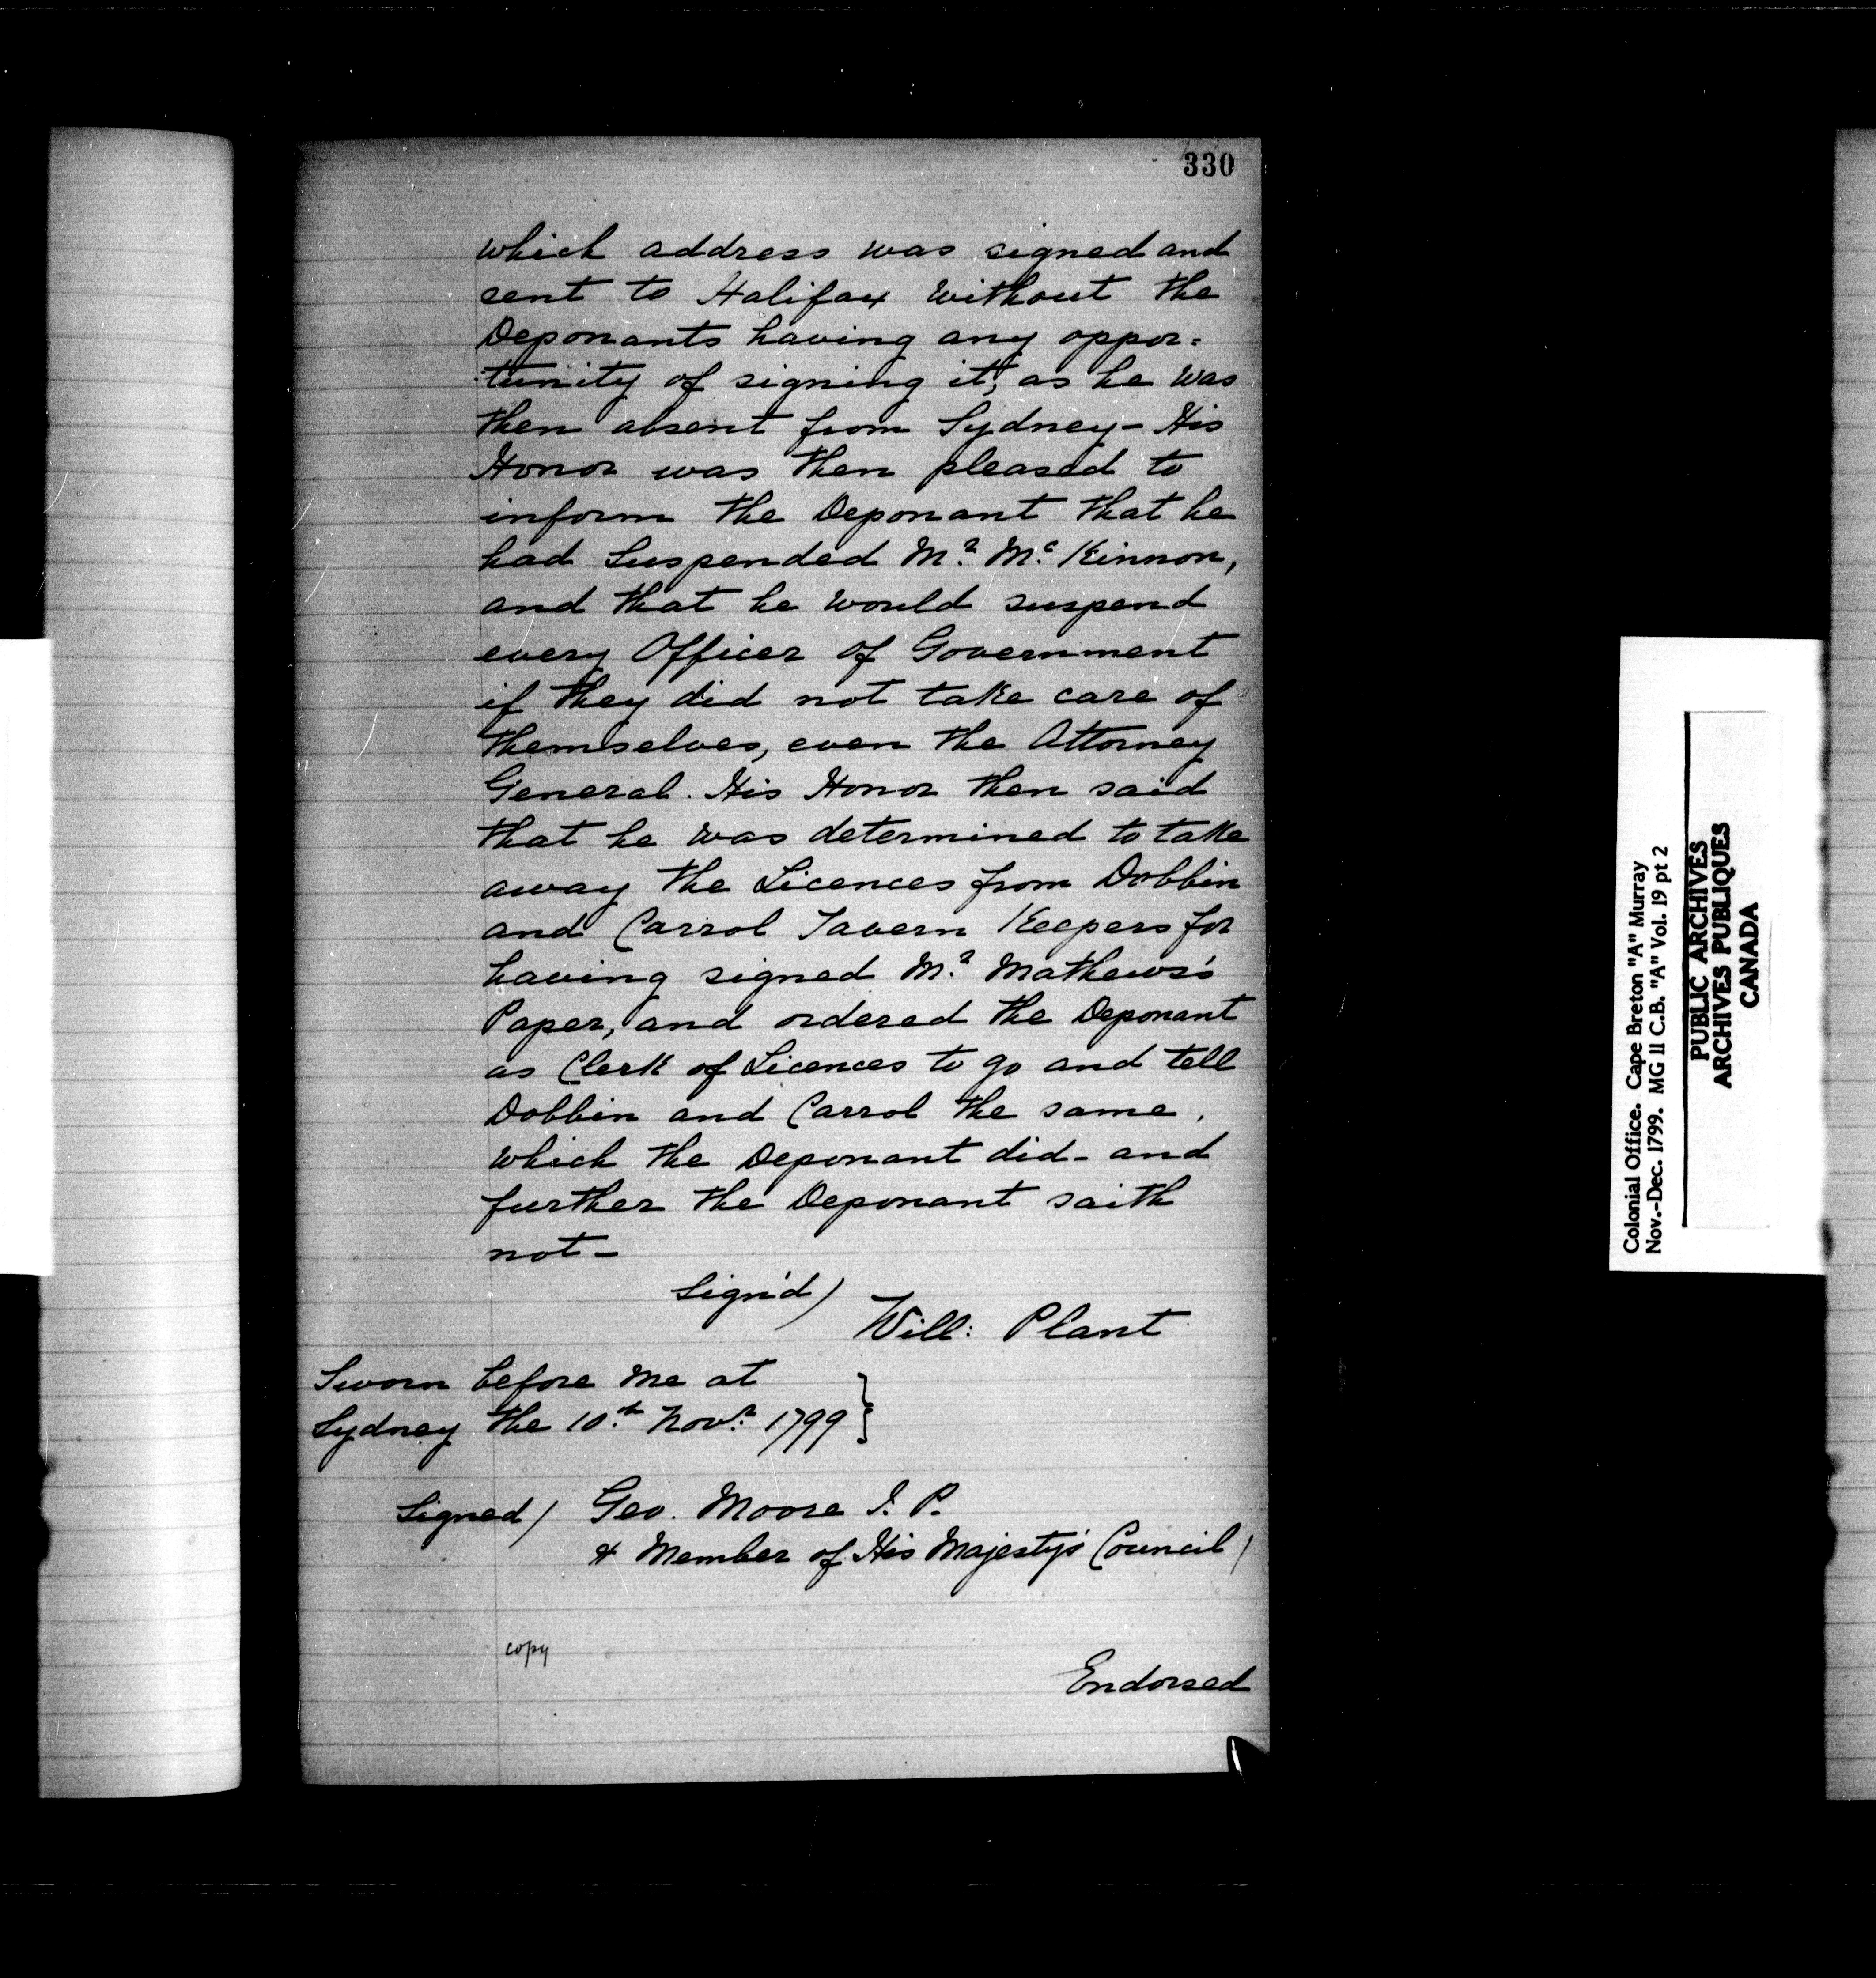 330
which address was signed and
sent to Halifax without the
Deponants having any oppor=
tunity of signing it, as he was
then absent from Sydney - His
Honor was then pleased to
inform the Deponant that he
had Suspended Mr. Mc. Kinnon,
and that he would suspend
every Officer of Government
if they did not take care of
themselves, even the Attorney
General. His Honor then said
that he was determined to take
away the Licences from Dobbin
and Carrol Tavern Keepers for
having signed Mr. Mathews's
Paper, and ordered the Deponant
as Clerk of Licences to go and tell
Dobbin and Carrol the same,
which the Deponant did - and
further the Deponant saith
not -
Sign'd)
Will: Plant
Sworn before me at
Sydney the 10.th Novr. 1799 }
Signed) Geo. Moore J. P.
& Member of His Majesty's Council)
copy
Endorsed
Colonial Office. Cape Breton "A" Murray
Nov.-Dec. 1799. MG 11 C.B. "A" Vol. 19 pt 2
PUBLIC ARCHIVES
ARCHIVES PUBLIQUES
CANADA